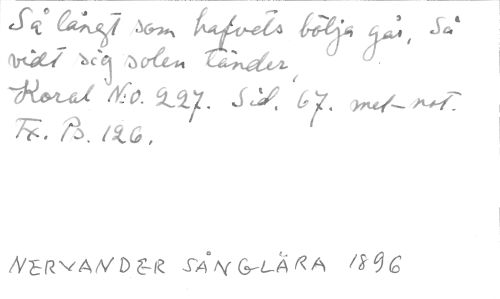 Så långt som hafvets bölja går, Så
vidt sig solen tänder,
Koral N:o. 227. Sid. 67. mel-not.
Tx. Ps. 126.
NERVANDER SÅNGLÄRA 1896